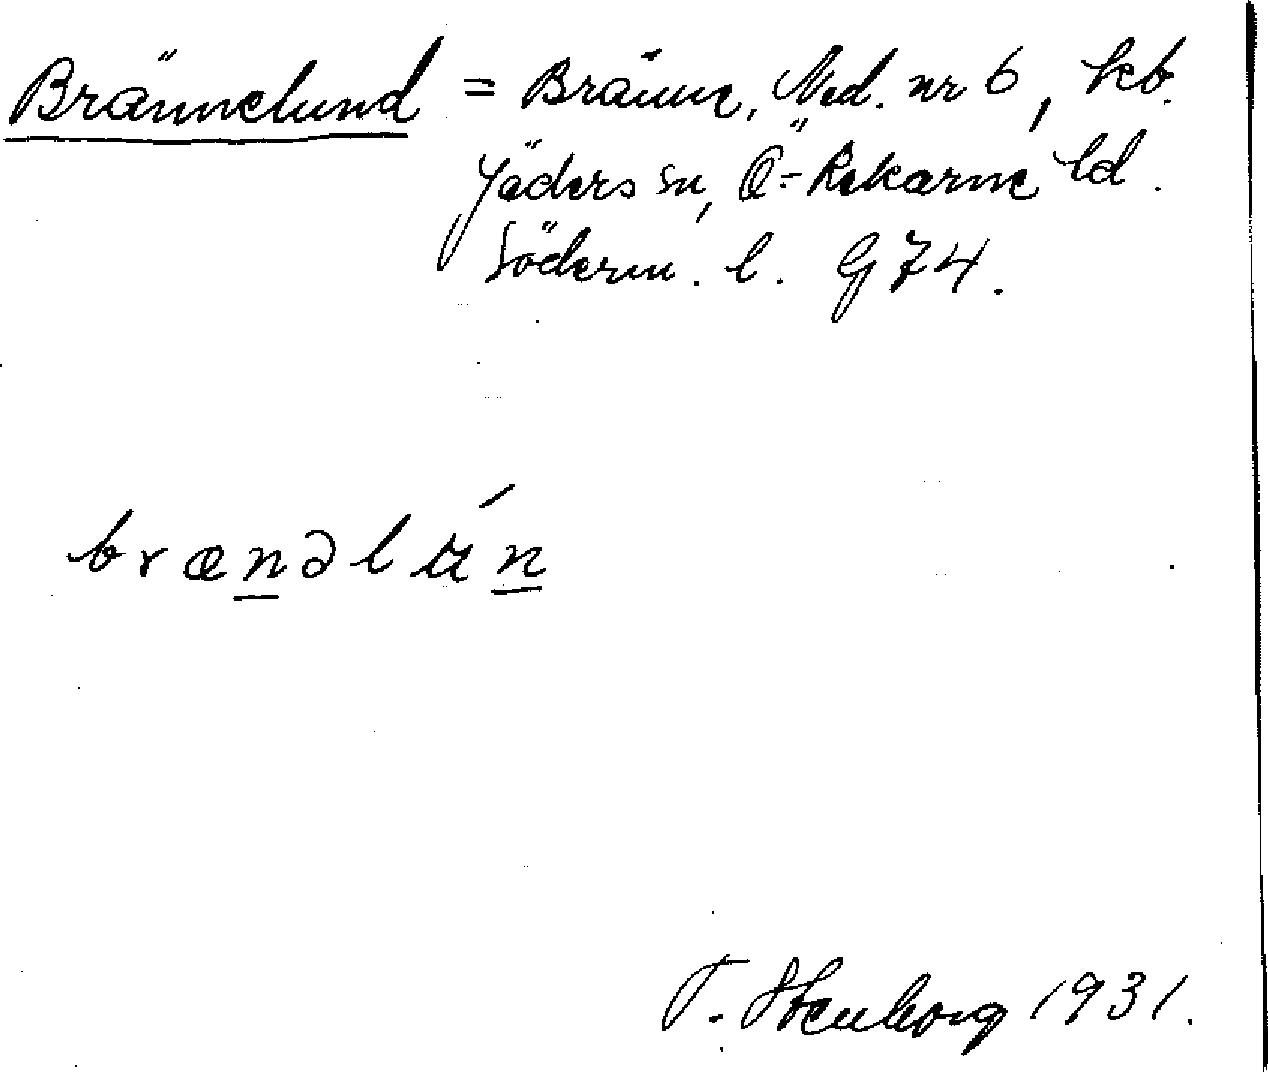 Brännelund = Bränne, Ned. nr 6, kb.
Jäders sn, Ö-Rekarne hd.
Söderm. l. G 74.
brænəlún
T. Stenborg 1931.